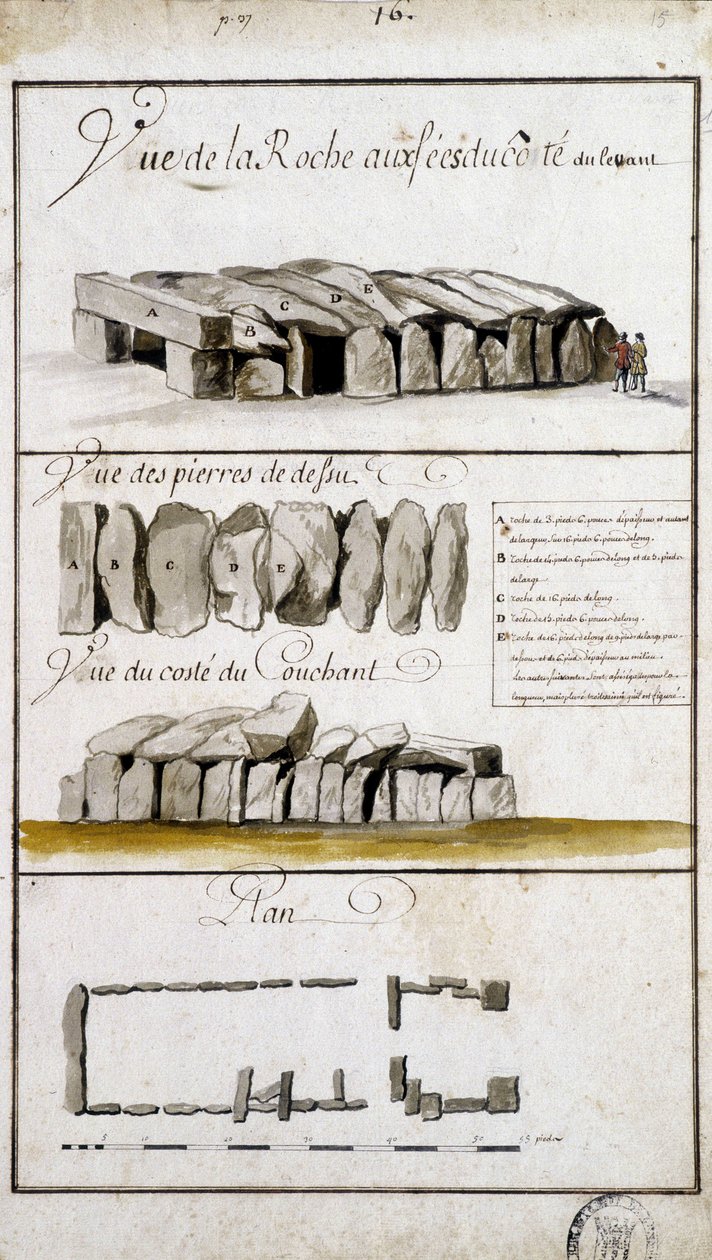 p. 37
16.
15
Vue de la Roche aux fées du côté du levant
A
B
C
D
E
Vue des pierres de dessu
A
B
C
D
E
A roche de 3. pieds 6. pouces dépaisseur, et autant
de largeur, sur 16. pieds 6. pouces de long.
B roche de 14. pieds 6. pouces de long et de 5. pieds
de large
C roche de 16. pieds de long.
D roche de 15. pieds 6. pouces de long.
E Roche de 16. pieds de long de 9. pieds de large par
dessous et de 6. pieds dépaisseur au milieu.
Les autres suivantes sont assés égalles pour la
longueur, mais
quil est figuré
Vue du costé du Couchant
Plan
5 10 20 30 40 50 55 pieds